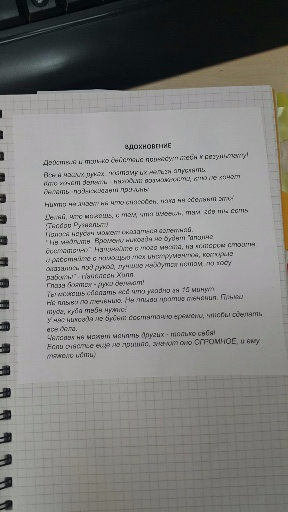 ВДОХНОВЕНИЕ
Действие и только действие приведут тебя к результату!
Все в наших руках, поэтому их нельзя опускать.
Кто хочет делать - находит возможности, кто не хочет
делать -подыскивает причины
Никто не знает на что способен, пока не сделает это!
Делай, что можешь, с тем, что имеешь, там где ты есть
(Теодор Рузвельт)
Полоса неудач может оказаться взлетной.
" Не медлите. Времени никогда не будет "вполне
достаточно". Начинайте с того места, на котором стоите
и работайте с помощью тех инструментов, которые
оказались под рукой, лучшие найдутся потом, по ходу
работы" - Наполеон Хилл.
Глаза боятся - руки делают!
Ты можешь сделать всё что угодно за 15 минут.
Не плыви по течению. Не плыви против течения. Плыви
туда, куда тебе нужно!
У нас никогда не будет достаточно времени, чтобы сделать
все дела.
Человек не может менять других - только себя!
Если счастье еще не пришло, значит оно ОГРОМНОЕ, и ему
тяжело идти)